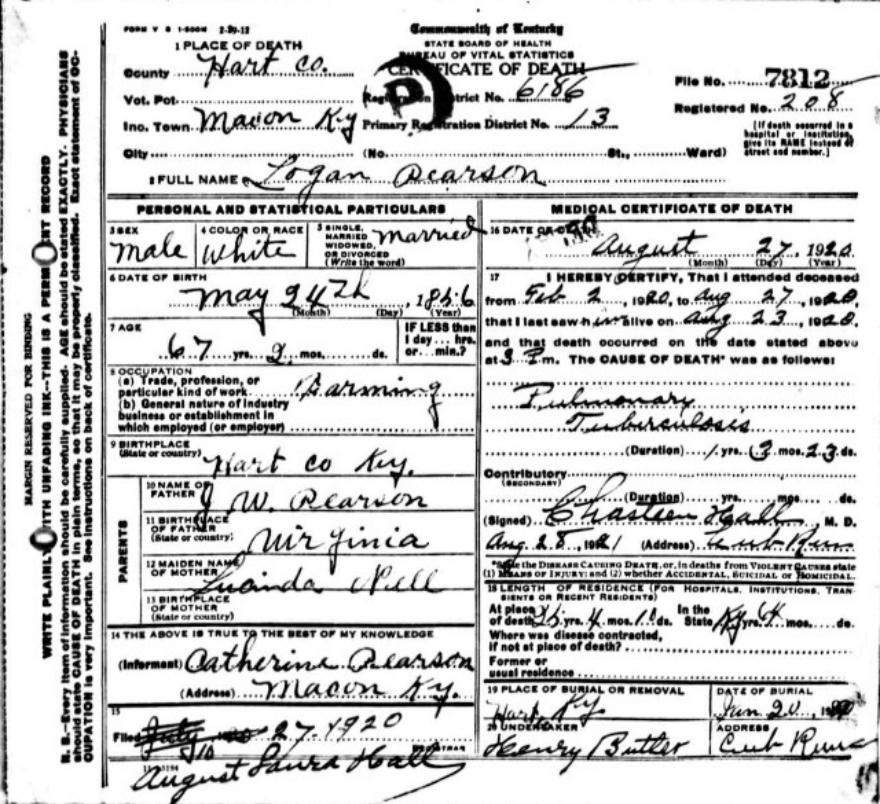 FORM V S 1-500M 2-29-12
Commonwealth of Kentucky
STATE BOARD OF HEALTH
BUREAU OF VITAL STATISTICS
CERTIFICATE OF DEATH
1 PLACE OF DEATH
County Hart Co.
Vot. Pct.
Inc. Town Macon Ky
City (No. St., Ward)
Registration District No. 6186
Primary Registration District No. 13
File No. 7812
Registered No. 208
[If death occurred in a
hospital or institution,
give its NAME instead of
street and number.]
P
2 FULL NAME Logan Pearson
PERSONAL AND STATISTICAL PARTICULARS
3 SEX
Male
4 COLOR OR RACE
White
5 SINGLE,
MARRIED
WIDOWED,
OR DIVORCED
(Write the word)
Married
6 DATE OF BIRTH
May 24th, 1856
(Month) (Day) (Year)
7 AGE
67 yrs. 2 mos. ds.
IF LESS than
1 day... hrs.
or... min.?
8 OCCUPATION
(a) Trade, profession, or
particular kind of work Farming
(b) General nature of industry
business or establishment in
which employed (or employer)
9 BIRTHPLACE
(State or country)
Hart co Ky.
PARENTS
10 NAME OF
FATHER
J W. Pearson
11 BIRTHPLACE
OF FATHER
(State or country)
Virginia
12 MAIDEN NAME
OF MOTHER
Lucinda Nell
13 BIRTHPLACE
OF MOTHER
(State or country)
14 THE ABOVE IS TRUE TO THE BEST OF MY KNOWLEDGE
(Informant) Catherine Pearson
(Address) Macon Ky.
15
Filed July 27 1920
REGISTRAR
August Laura Hall
11-3194
MEDICAL CERTIFICATE OF DEATH
16 DATE OF DEATH
August 27, 1920
(Month) (Day) (Year)
17 I HEREBY CERTIFY, That I attended deceased
from Feb 2, 1920, to Aug 27, 1920,
that I last saw him alive on Aug 23, 1920,
and that death occurred on the date stated above
at 3 P.m. The CAUSE OF DEATH* was as follows:
Pulmonary
Tuberculosis
(Duration) 1 yrs. mos. 23 ds.
Contributory
(SECONDARY)
(Duration) yrs. mos. ds.
(Signed) Chasteen Hall M. D.
Aug 28, 1921 (Address) Cub Run
*State the DISEASE CAUSING DEATH, or, in deaths from VIOLENT CAUSES state
(1) MEANS OF INJURY; and (2) whether ACCIDENTAL, SUICIDAL or HOMICIDAL.
18 LENGTH OF RESIDENCE (FOR HOSPITALS, INSTITUTIONS, TRAN-
SIENTS OR RECENT RESIDENTS)
At place
of death yrs. 4 mos. 10 ds.
In the
State Ky yrs. 64 mos. ds.
Where was disease contracted,
if not at place of death?
Former or
usual residence
19 PLACE OF BURIAL OR REMOVAL
Hart, Ky
DATE OF BURIAL
Jan 20
20 UNDERTAKER
Henry Butler
ADDRESS
Cub Run
MARGIN RESERVED FOR BINDING
WRITE PLAINLY WITH UNFADING INK--THIS IS A PERMANENT RECORD
N. B.--Every item of information should be carefully supplied. AGE should be stated EXACTLY. PHYSICIANS
should state CAUSE OF DEATH in plain terms, so that it may be properly classified. Exact statement of OC-
CUPATION is very important. See instructions on back of certificate.